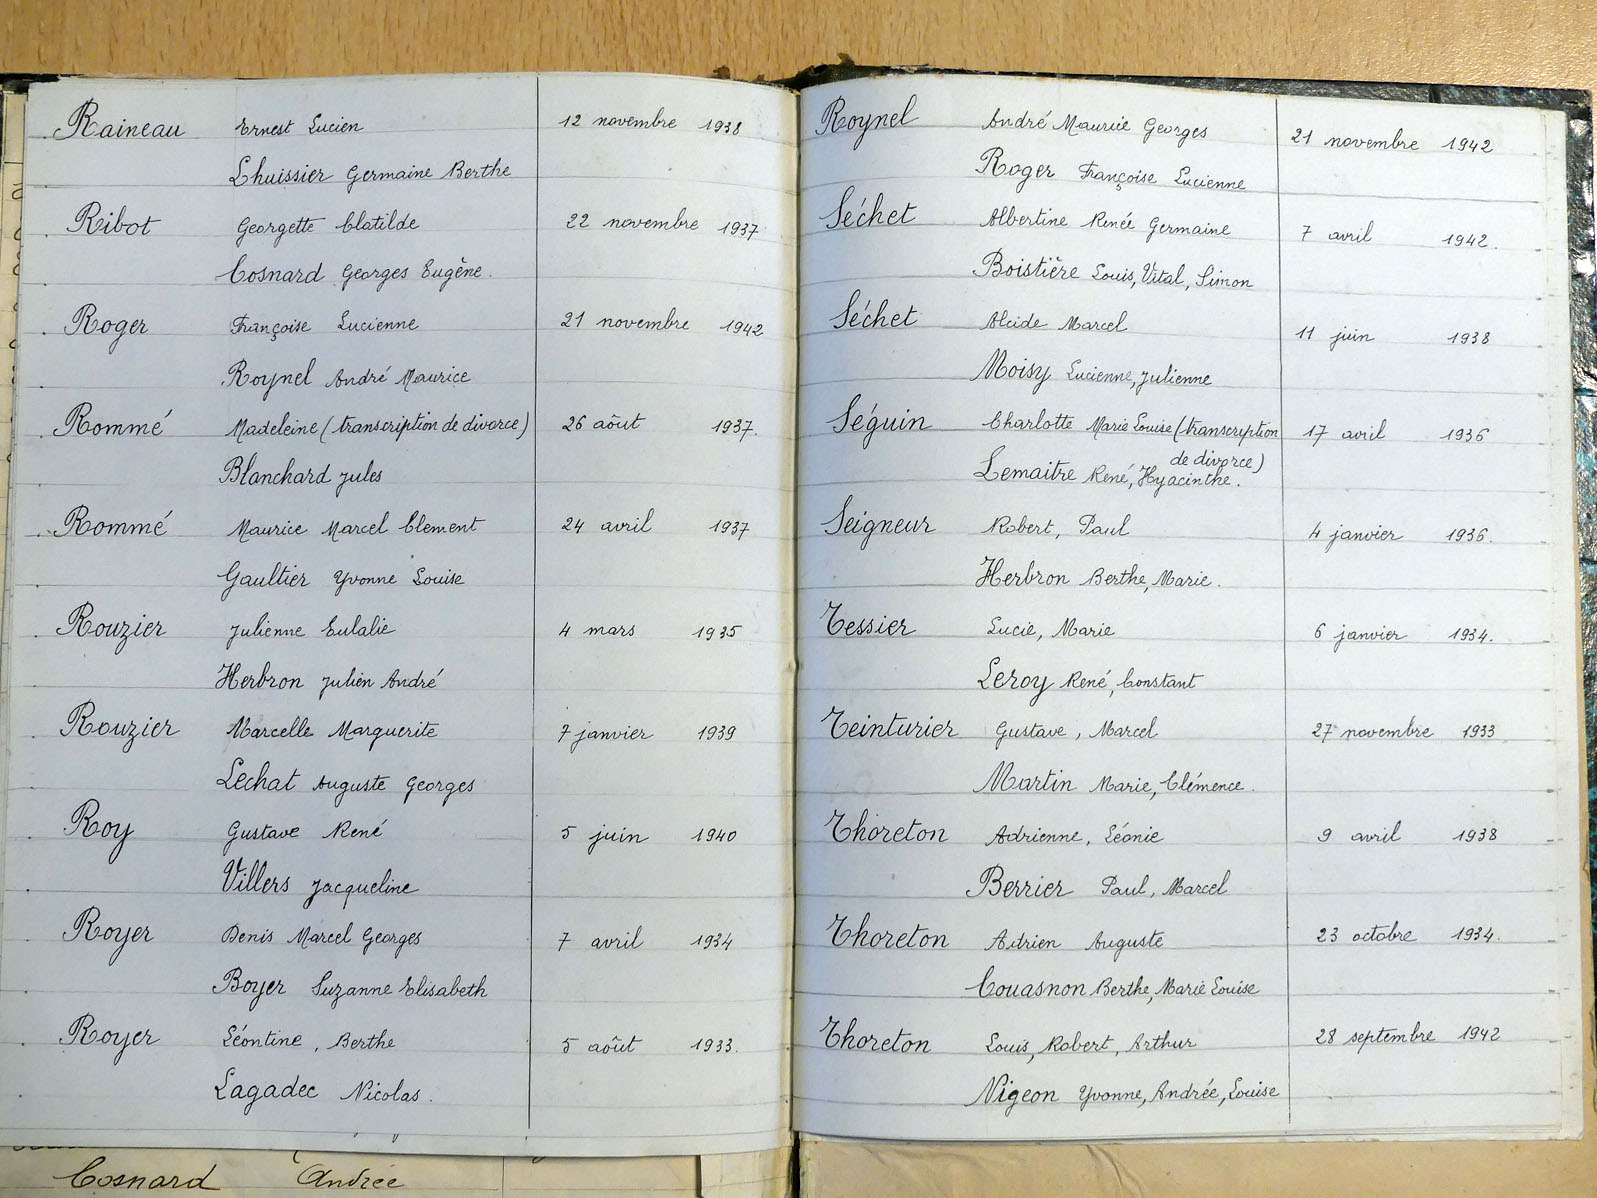 Raineau Ernest Lucien 12 novembre 1938
Lhuissier Germaine Berthe
Ribot Georgette Clotilde 22 novembre 1937
Cosnard Georges Eugène.
Roger Françoise Lucienne 21 novembre 1942
Roynel André Maurice
Rommé Madeleine (transcription de divorce) 26 aôut 1937.
Blanchard Jules
Rommé Maurice Marcel Clement 24 avril 1937
Gaultier Yvonne Louise
Rouzier Julienne Eulalie 4 mars 1935
Herbron Julien André
Rouzier Marcelle Marguerite 7 janvier 1939
Lechat Auguste Georges
Roy Gustave René 5 juin 1940
Villers Jacqueline
Royer Denis Marcel Georges 7 avril 1934
Boyer Suzanne Elisabeth
Royer Léontine, Berthe 5 aôut 1933.
Lagadec Nicolas.
Cosnard Andrée
Roynel André Maurice Georges 21 novembre 1942
Roger Françoise Lucienne
Séchet Albertine Renée Germaine 7 avril 1942.
Boistière Louis, Vital, Simon
Séchet Alcide Marcel 11 juin 1938
Moisy Lucienne, Julienne
Séguin Charlotte Marie Louise (transcription 17 avril 1936
de divorce)
Lemaitre René, Hyacinthe.
Seigneur Robert, Paul 4 janvier 1936.
Herbron Berthe, Marie.
Tessier Lucie, Marie 6 janvier 1934.
Leroy René, Constant
Teinturier Gustave, Marcel 27 novembre 1933
Martin Marie, Clémence.
Thoreton Adrienne, Léonie 9 avril 1938
Berrier Paul, Marcel
Thoreton Adrien Auguste 23 octobre 1934.
Couasnon Berthe, Marie Louise
Thoreton Louis, Robert, Arthur 28 septembre 1942
Nigeon Yvonne, Andrée, Louise